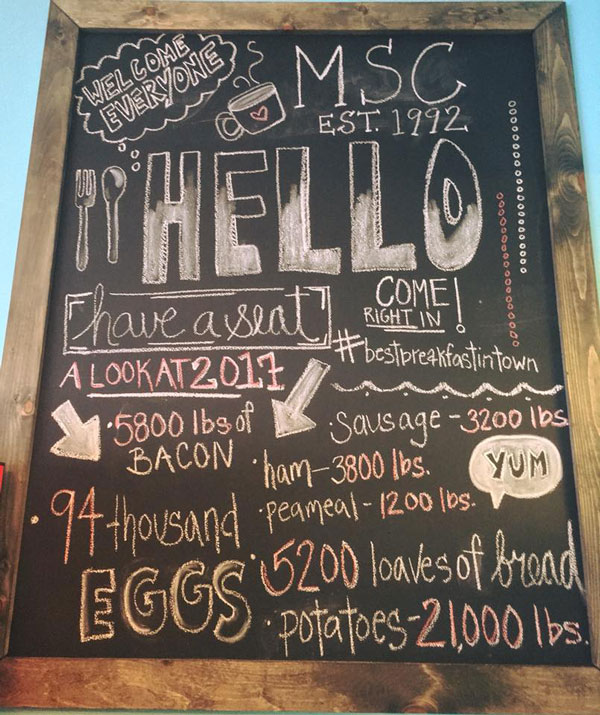 WELCOME
EVERYONE
MSC
EST. 1992
HELLO
have a seat
COME
RIGHT IN !
#bestbreakfastintown
A LOOK AT 2017
·5800 lbs of
BACON
·Sausage - 3200 lbs
·ham - 3800 lbs.
YUM
·peameal - 1200 lbs.
·94 thousand
EGGS
·5200 loaves of bread
·potatoes - 21,000 lbs.